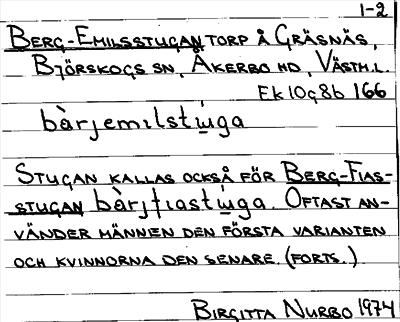 1-2
BERG-EMILSSTUGAN TORP Å GRÄSNÄS,
BJÖRSKOGS SN, ÅKERBO HD, VÄSTM.L.
Ek 10g8b 166
bàrjemılstu̇ga
STUGAN KALLAS OCKSÅ FÖR BERG-FIAS-
STUGAN bàrjfıastu̇ga. OFTAST AN-
VÄNDER MÄNNEN DEN FÖRSTA VARIANTEN
OCH KVINNORNA DEN SENARE. (FORTS.)
BIRGITTA NURBO 1974